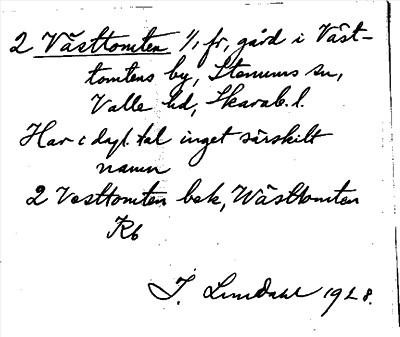 2 Västtomten 1/1 fr, gård i Väst-
tomtens by, Stenums sn,
Valle hd, Skarab. l.
Har i dagl. tal inget särskilt
namn
2 Vesttomten bek, Wästtomten
Kb
J. Lindahl 1928.